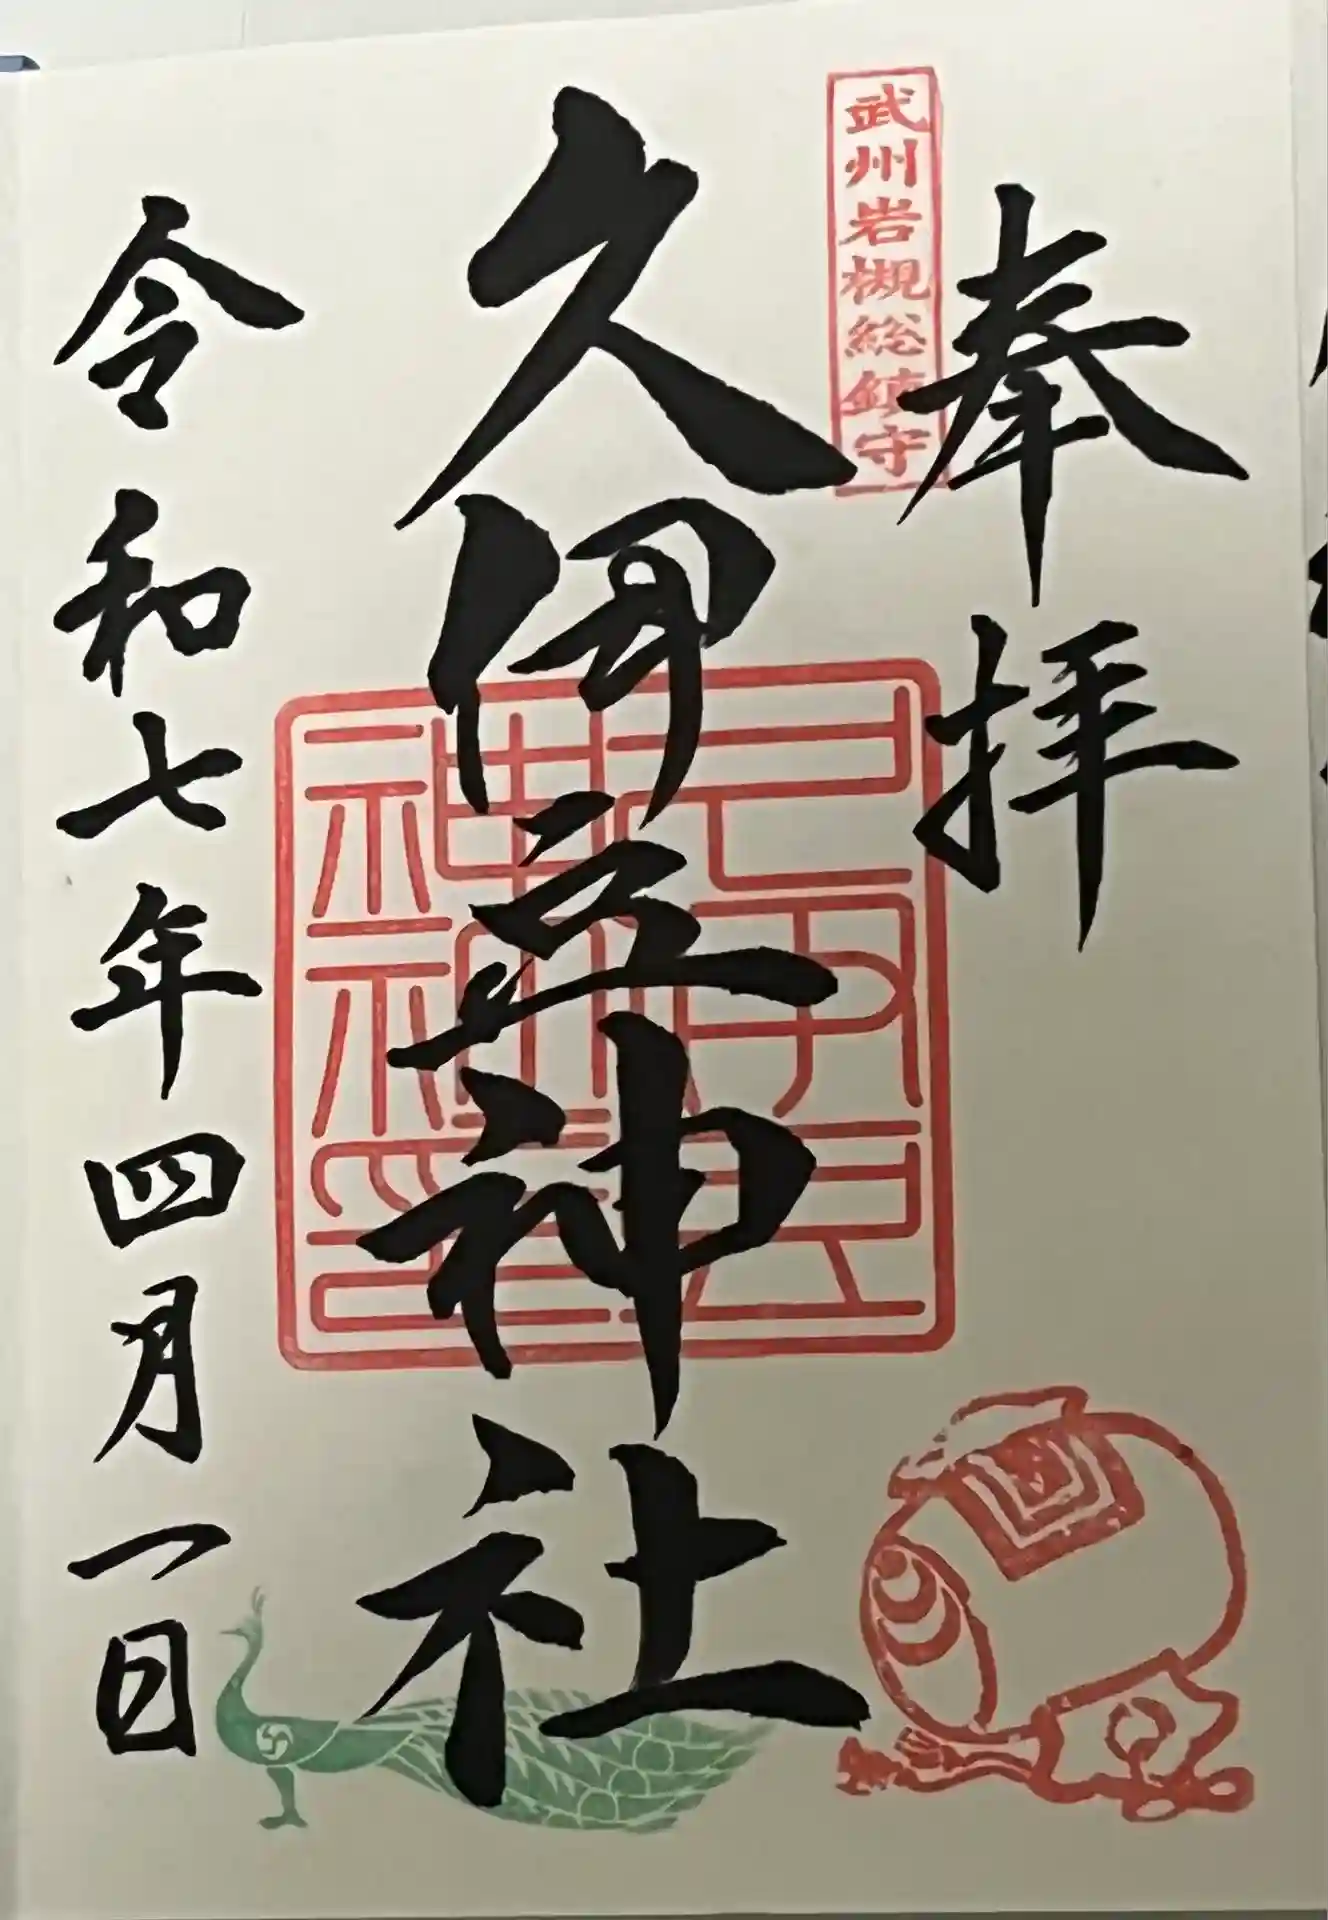 奉拝
武州岩槻総鎮守
久伊豆神社
令和七年四月一日